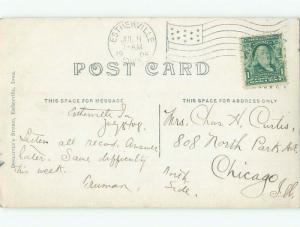 ESTHERVILLE
JUL 8
POST CARD
THIS SPACE FOR MESSAGE
THIS SPACE FOR ADDRESS ONLY
Estherville Ia
July 8/08
Listen all record. Answer
later. Save difficulty
this week.
Truman.
Mrs. Chas H. Curtis,
808 North Park Ave
Chicago
North
Side.
Ill.
Estherville, Iowa.
1